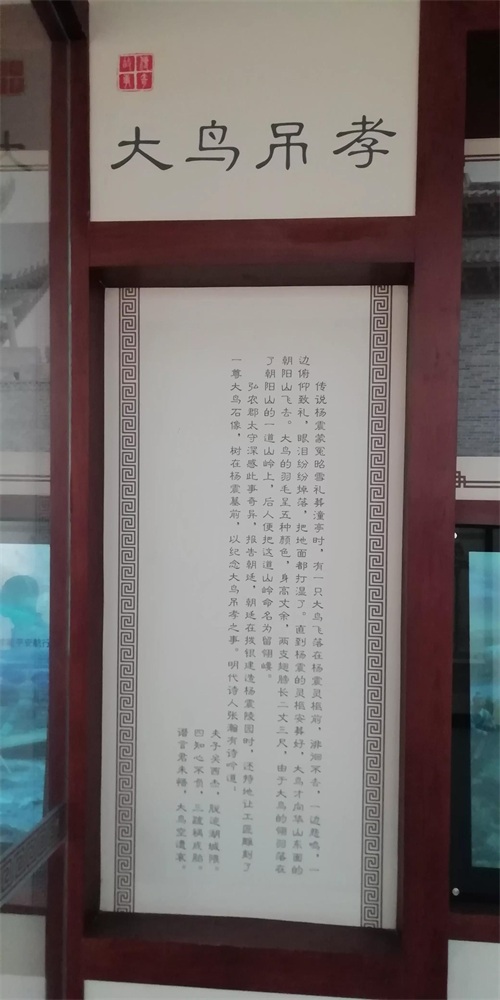 大鸟吊孝
传说杨震蒙冤昭雪礼葬潼亭时，有一只大鸟飞落在杨震灵柩前，徘徊不去，一边悲鸣，一
边俯仰致礼，眼泪纷纷掉落，把地面都打湿了。直到杨震的灵柩安葬好，大鸟才向华山东面的
朝阳山飞去。大鸟的羽毛呈五种颜色，身高丈余，两支翅膀长二丈三尺，由于大鸟的翎羽落在
了朝阳山的一道山岭上，后人便把这道山岭命名为留翎嶂。
弘农郡太守深感此事奇异，报告朝廷，朝廷在拨银建造杨震陵园时，还特地让工匠雕刻了
一尊大鸟石像，树在杨震墓前，以纪念大鸟吊孝之事。明代诗人张瀚有诗吟道：
夫子关西杰，
四知心不负，三疏祸成胎。
谮言君未悟，大鸟空遗哀。